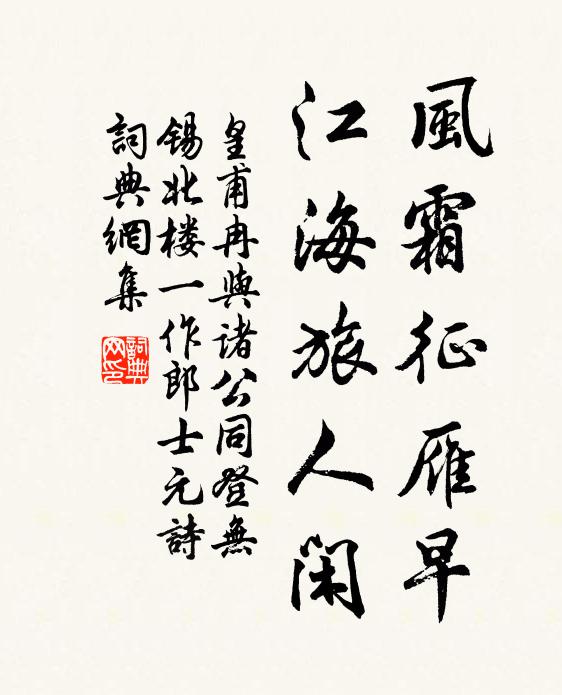 風霜征雁早
江海旅人閑
皇甫冉與諸公同登無
錫北楼一作郎士元詩
詞典網集
詞典
网印